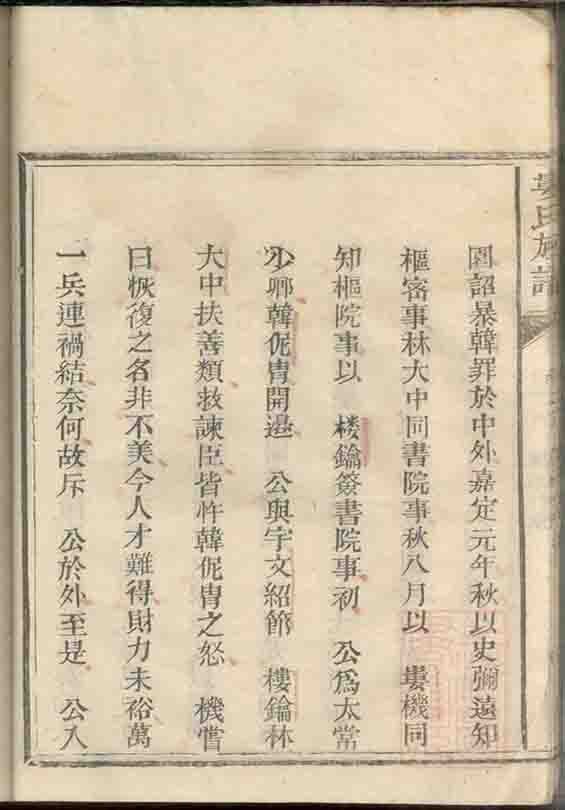 婁氏族譜
園詔暴韓罪於中外嘉定元年秋以史彌遠知
樞密事林大中同書院事秋八月以 婁機同
知樞院事以 楼鑰簽書院事初 公爲太常
少卿韓侂胄開邉 公與宇文紹節 樓鑰林
大中扶善類救諫臣皆忤韓侂胄之怒 機嘗
曰恢復之名非不美今人才難得財力未裕萬
一兵連禍結奈何故斥 公於外至是 公入